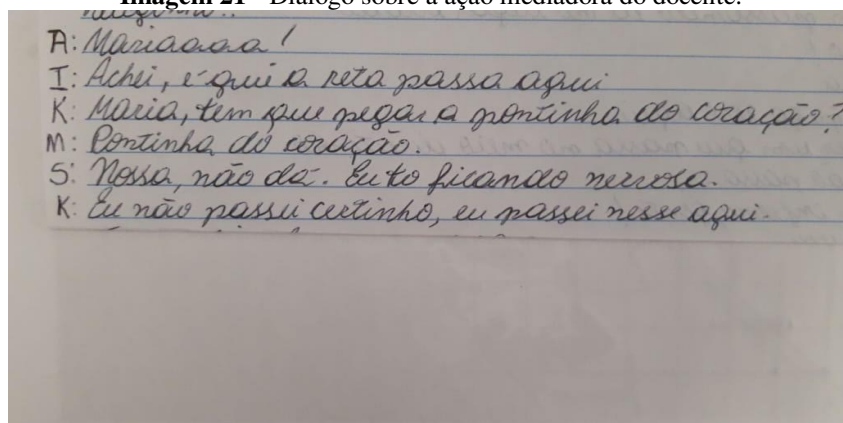 Imagem 21 - Diálogo sobre a ação mediadora do docente.
A: Mariaaaa!
I: Achei, é que a reta passa aqui
K: Maria, tem que pegar a pontinha do coração?
M: Pontinha do coração.
S: Nossa, não dá. Eu to ficando nervosa.
K: Eu não passei certinho, eu passei nesse aqui.